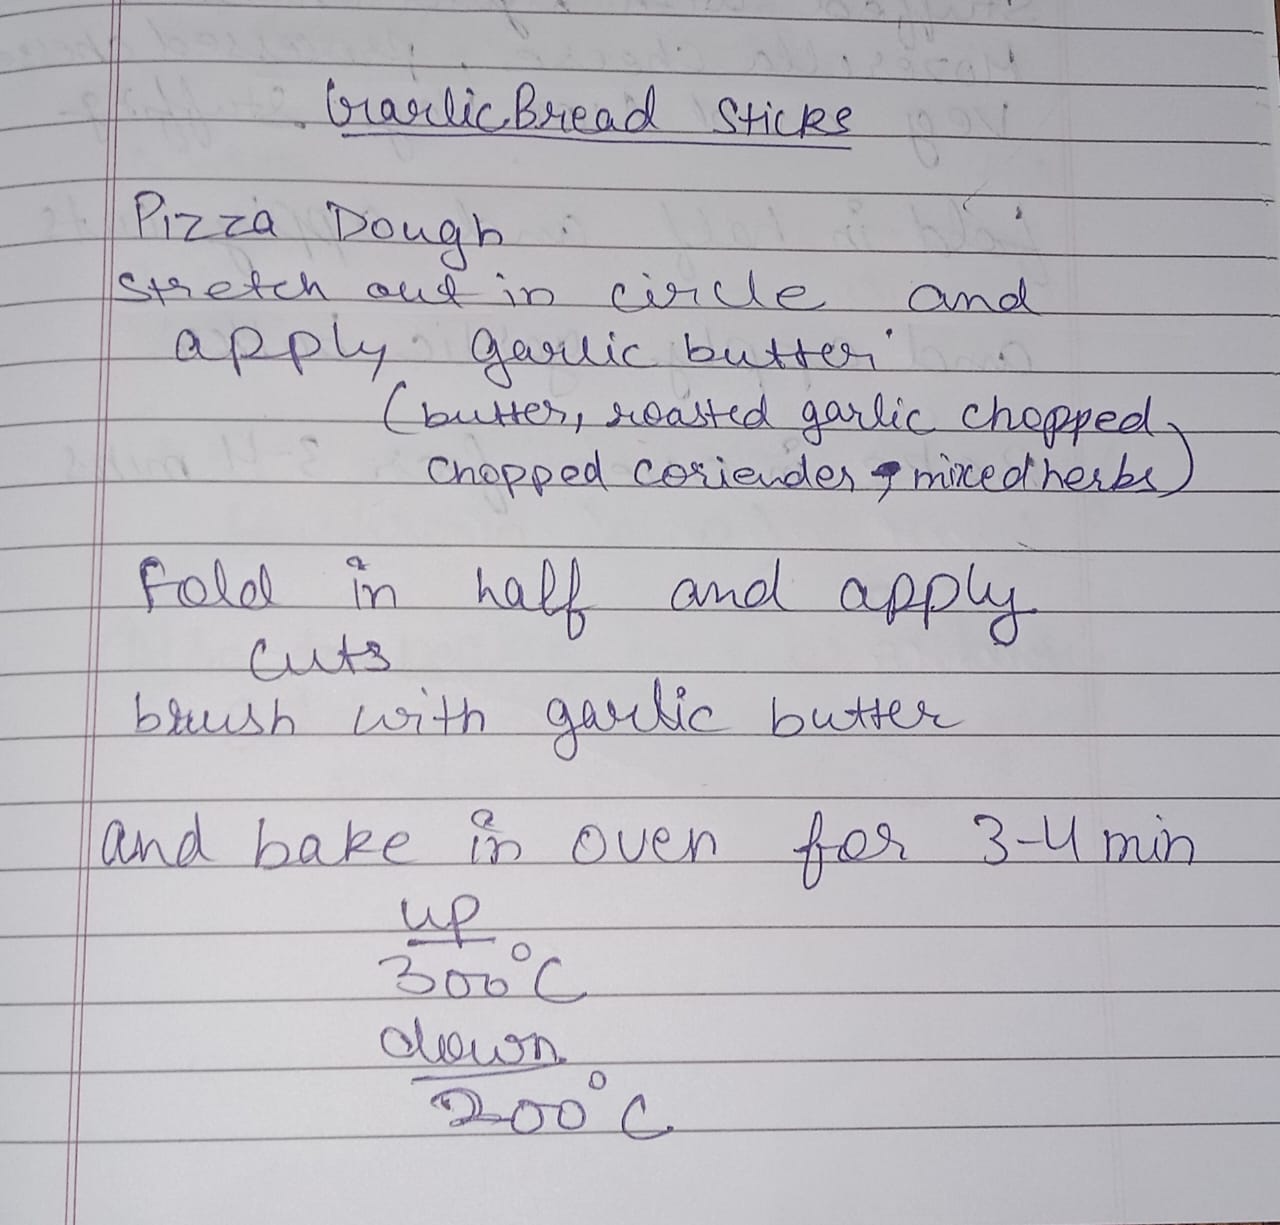 Garlic Bread Sticks
Pizza Dough
stretch out in circle and
apply garlic butter
(butter, roasted garlic chopped,
chopped coriender, mixed herbs)
Fold in half and apply
cuts
brush with garlic butter
and bake in oven for 3-4 min
up
300°C
down
200°C